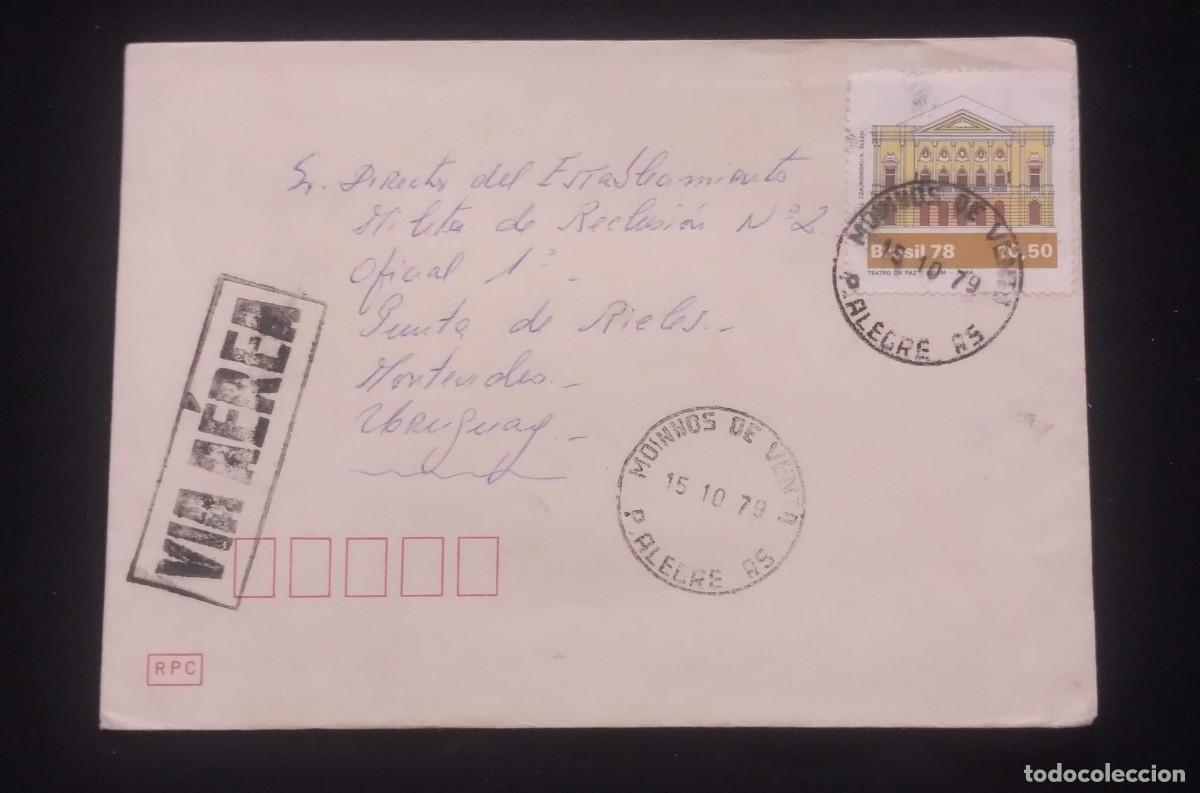 Sr. Director del Establecimiento
Militar de Reclusión Nº 2
Oficial 1º
Punta de Rieles.-
Montevideo.-
Uruguay.-
Brasil 78 10,50
TEATRO DA PAZ
MOINHOS DE VENTO
15 10 79
P. ALEGRE RS
VIA AÉREA
MOINHOS DE VENTO
15 10 79
P. ALEGRE RS
RPC
todocoleccion